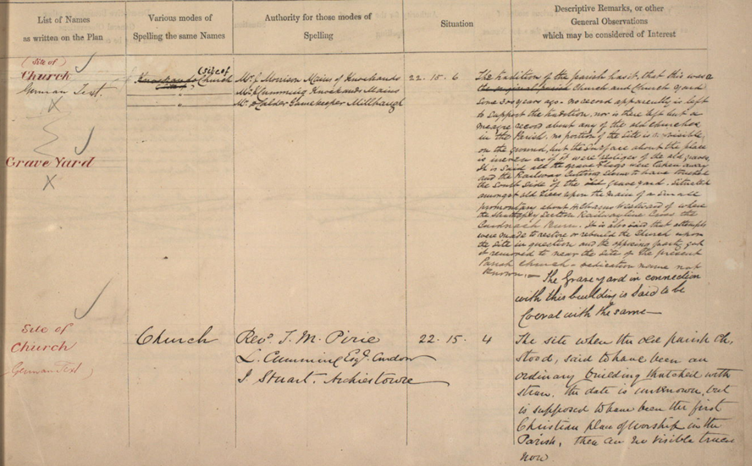 List of Names
as written on the Plan
Various modes of
Spelling the same Names
Authority for those modes of
Spelling
Situation
Descriptive Remarks, or other
General Observations
which may be considered of Interest
(Site of)
Church
German Text.
X
Knockando Church
(Site of
Mr. J. Morrison Mains of Knockando
Mr. Cumming Knockando Mains
Mr. Calder Gamekeeper Millhaugh
22. 15. 6
The tradition of the parish has it, that this was a
Church and Church Yard
some 300 years ago. No record apparently is left
to support the tradition, nor is there left but a
meagre record about any of the old churches
in the Parish. No portion of the site is visible,
on the ground, but the surface about the place
is uneven as if it were of the old graves
It is said all the grave were taken away
and the Railway Cutting seems to have touched
the South Side of the old graveyard. Situated
amongst old trees upon the of a small
promontory about Eastward of where
the Section Railway line the
Burn. It is also said that attempts
were made to restore or rebuild the Church upon
the site in question and the opposing party got
it removed to near the site of the present
Parish Church - dedication name not
known. —
The Graveyard in connection
with this building is said to be
Coeval with the same —
Grave Yard
X
Site of
Church
German Text
Church
Revd. J. M. Pirie
L. Cumming Esq.
J. Stuart. Archiestown
22. 15. 4
The site where the old parish Ch.
stood, said to have been an
ordinary building thatched with
straw. the date is unknown, but
is supposed to have been the first
Christian place of worship in the
Parish, There are no visible traces
now